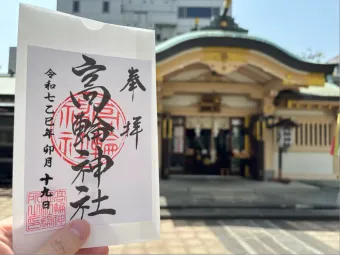 奉拝
高輪神社
令和七乙巳年 卯月 十九日